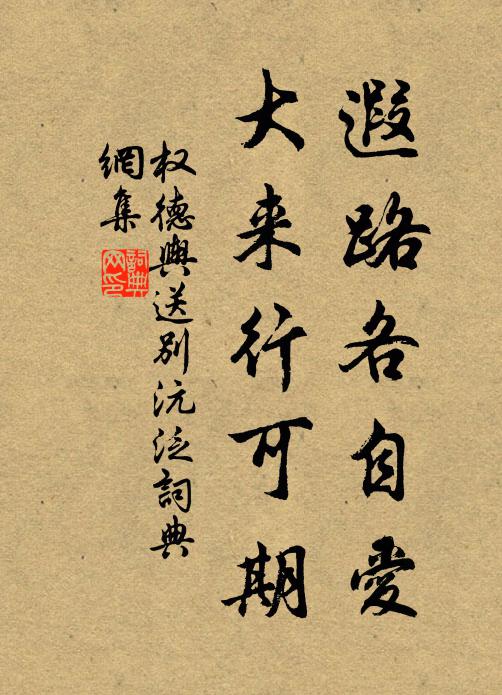 遐路各自愛
大来行可期
权德輿送别沅泛詞典
網集
詞典网印